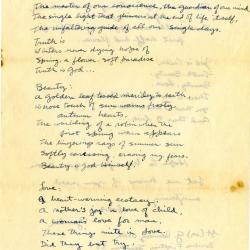 The master of our conscience, the guardian of our mind
The single light that shines at the end of life itself,
The unfaltering guide of all our single days.
Truth is
Winters never dying hopes of
Spring, a flower soft Paradise
Truth is God...
Beauty,
A golden leaf to earth
whose touch of sun warms frosty
autumn hearts,
The of a robin when the
first spring sun appears
The days of summer sun
Softly caressing, erasing my fears.
Beauty is God Himself.
Love,
A heart-warming ecstasy,
A mother's joy in love of child,
A woman's love for man,
These things unite in love.
Did they but try,